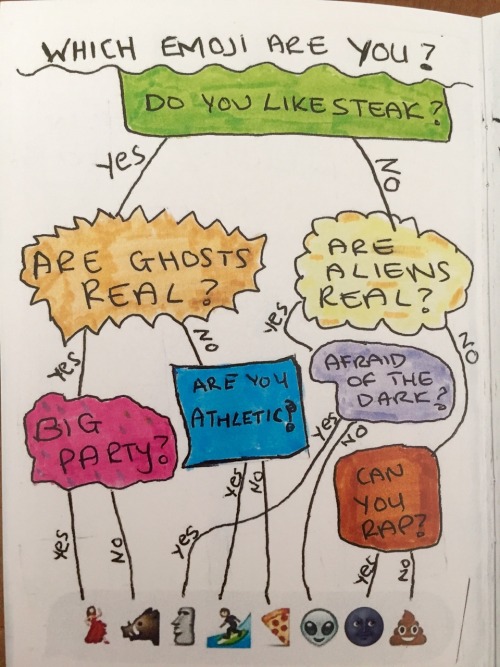 WHICH EMOJI ARE YOU?
DO YOU LIKE STEAK?
Yes
NO
ARE GHOSTS
REAL?
ARE
ALIENS
REAL?
Yes
NO
Yes
NO
BIG
PARTY?
ARE YOU
ATHLETIC?
AFRAID
OF THE
DARK?
Yes
NO
Yes
NO
Yes
NO
yes
CAN
YOU
RAP?
Yes
NO